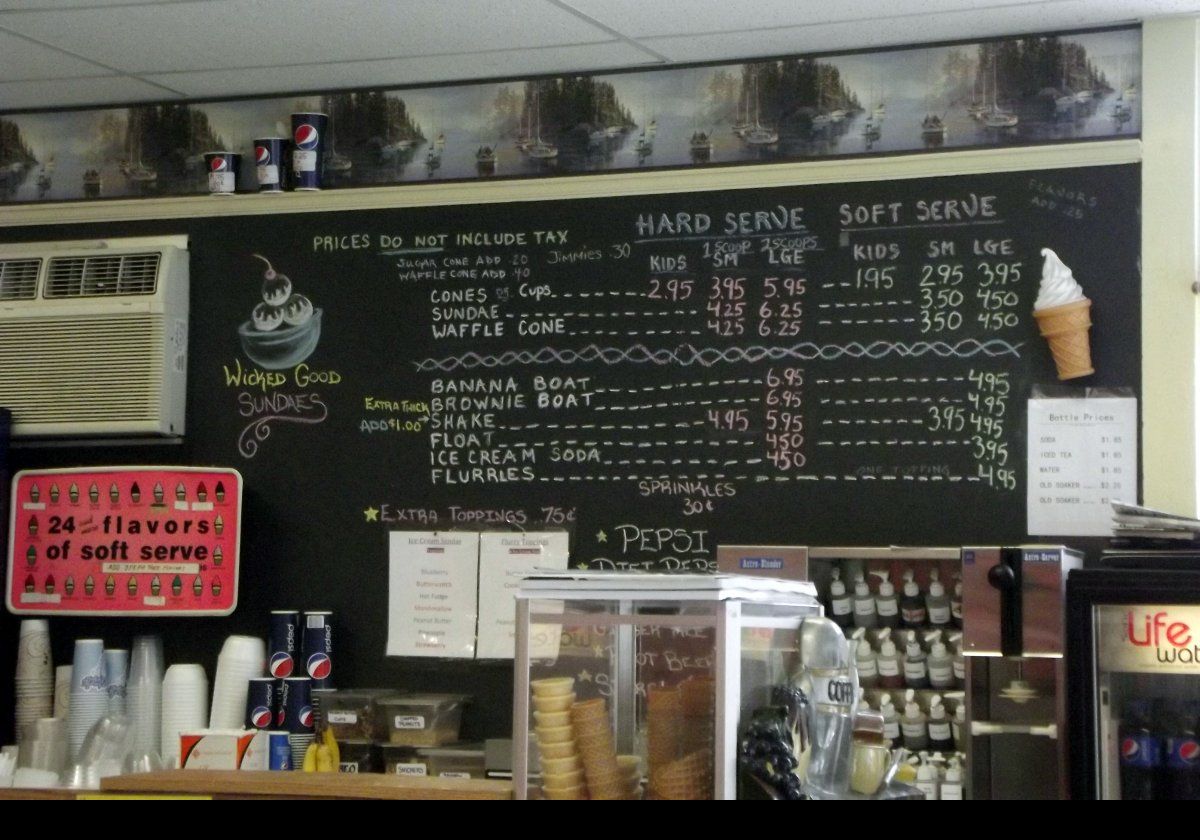 PRICES DO NOT INCLUDE TAX
SUGAR CONE ADD .20
WAFFLE CONE ADD .40
Jimmies .30
HARD SERVE
SOFT SERVE
FLAVORS
ADD .25
1 SCOOP 2 SCOOPS
KIDS SM LGE
KIDS SM LGE
CONES or Cups 2.95 3.95 5.95 1.95 2.95 3.95
SUNDAE 4.25 6.25 3.50 4.50
WAFFLE CONE 4.25 6.25 3.50 4.50
WICKED GOOD
SUNDAES
BANANA BOAT 6.95 4.95
BROWNIE BOAT 6.95 4.95
EXTRA THICK
ADD $1.00
SHAKE 4.95 5.95 3.95 4.95
FLOAT 4.50 3.95
ICE CREAM SODA 4.50
FLURRIES ONE TOPPING 4.95
SPRINKLES
30¢
EXTRA TOPPINGS .75¢
PEPSI
DIET PEPS
Bottle Prices
SODA $1.85
ICED TEA $1.85
WATER $1.85
OLD SOAKER $2.25
OLD SOAKER
24 flavors
of soft serve
Ice Cream Sundae
Blueberry
Butterscotch
Hot Fudge
Marshmallow
Peanut Butter
Pineapple
Strawberry
Flurry Toppings
Astro-Blender
Astro-Server
pepsi
pepsi
COFF
Life
wat